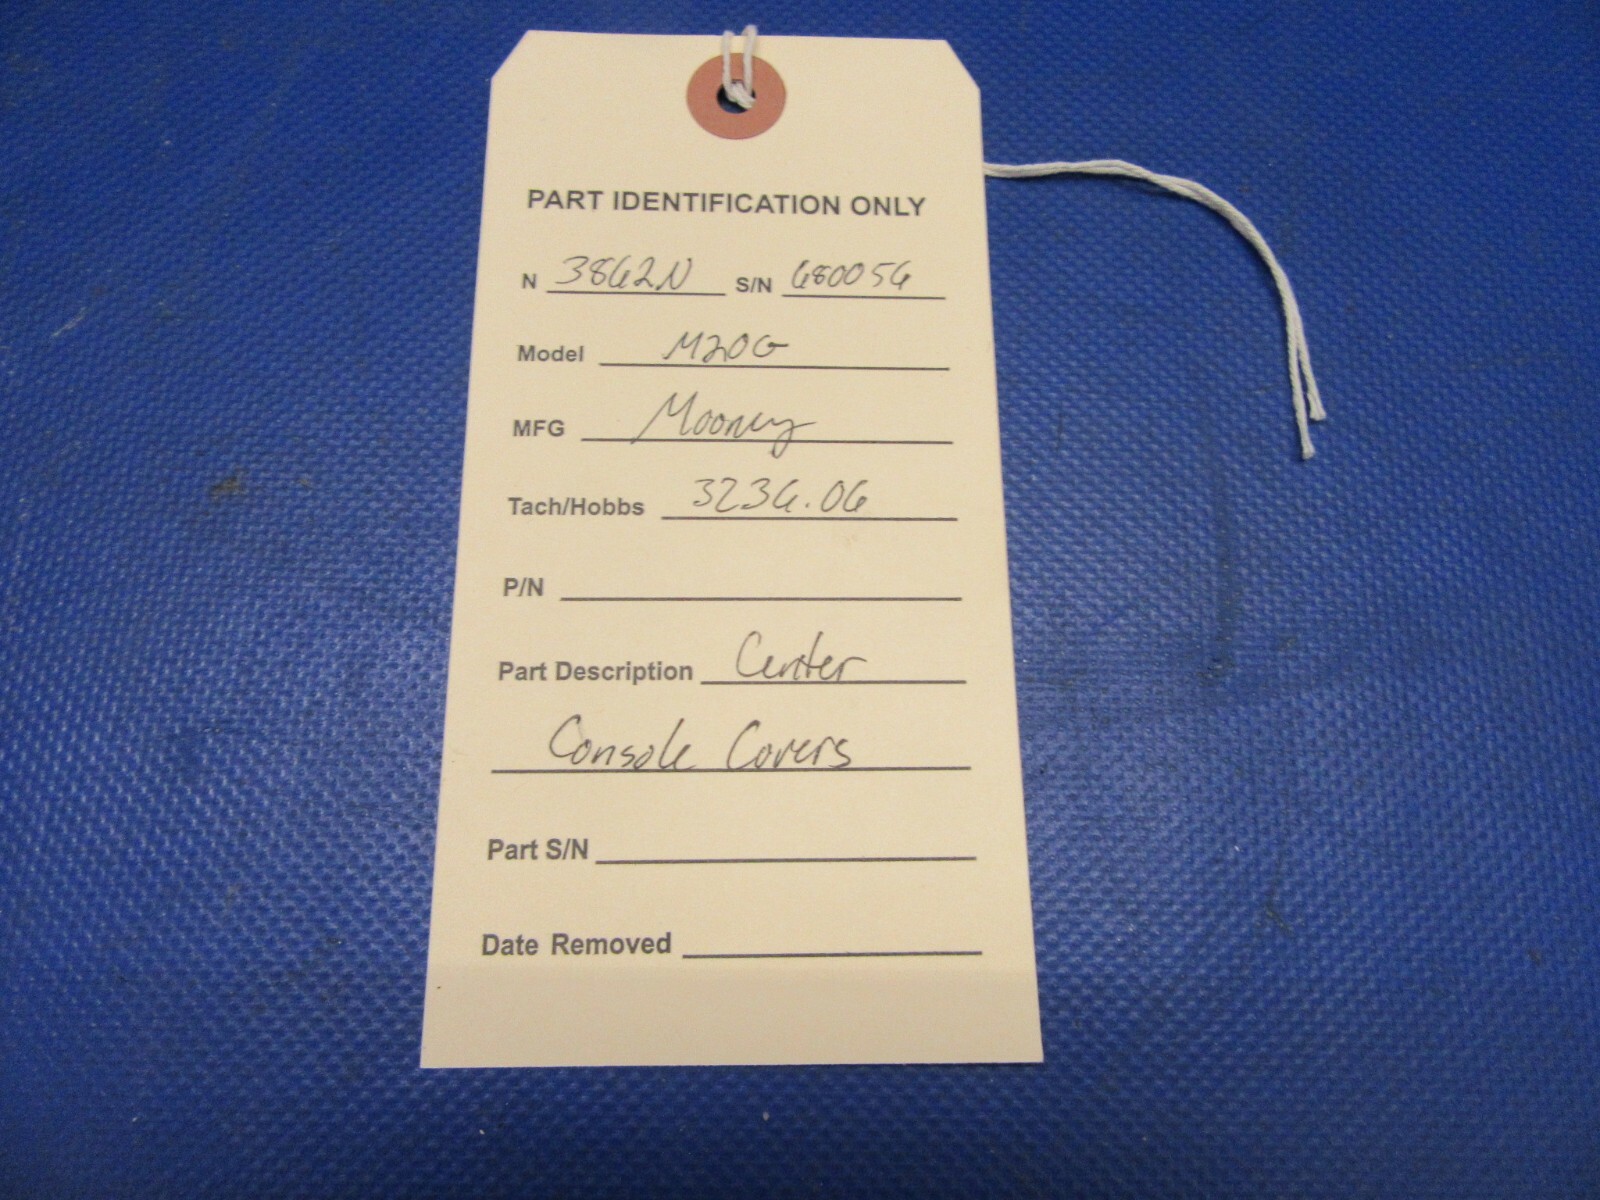 PART IDENTIFICATION ONLY
N 3862N S/N 680056
Model M20G
MFG Mooney
Tach/Hobbs 3236.06
P/N
Part Description Center
Console Covers
Part S/N
Date Removed